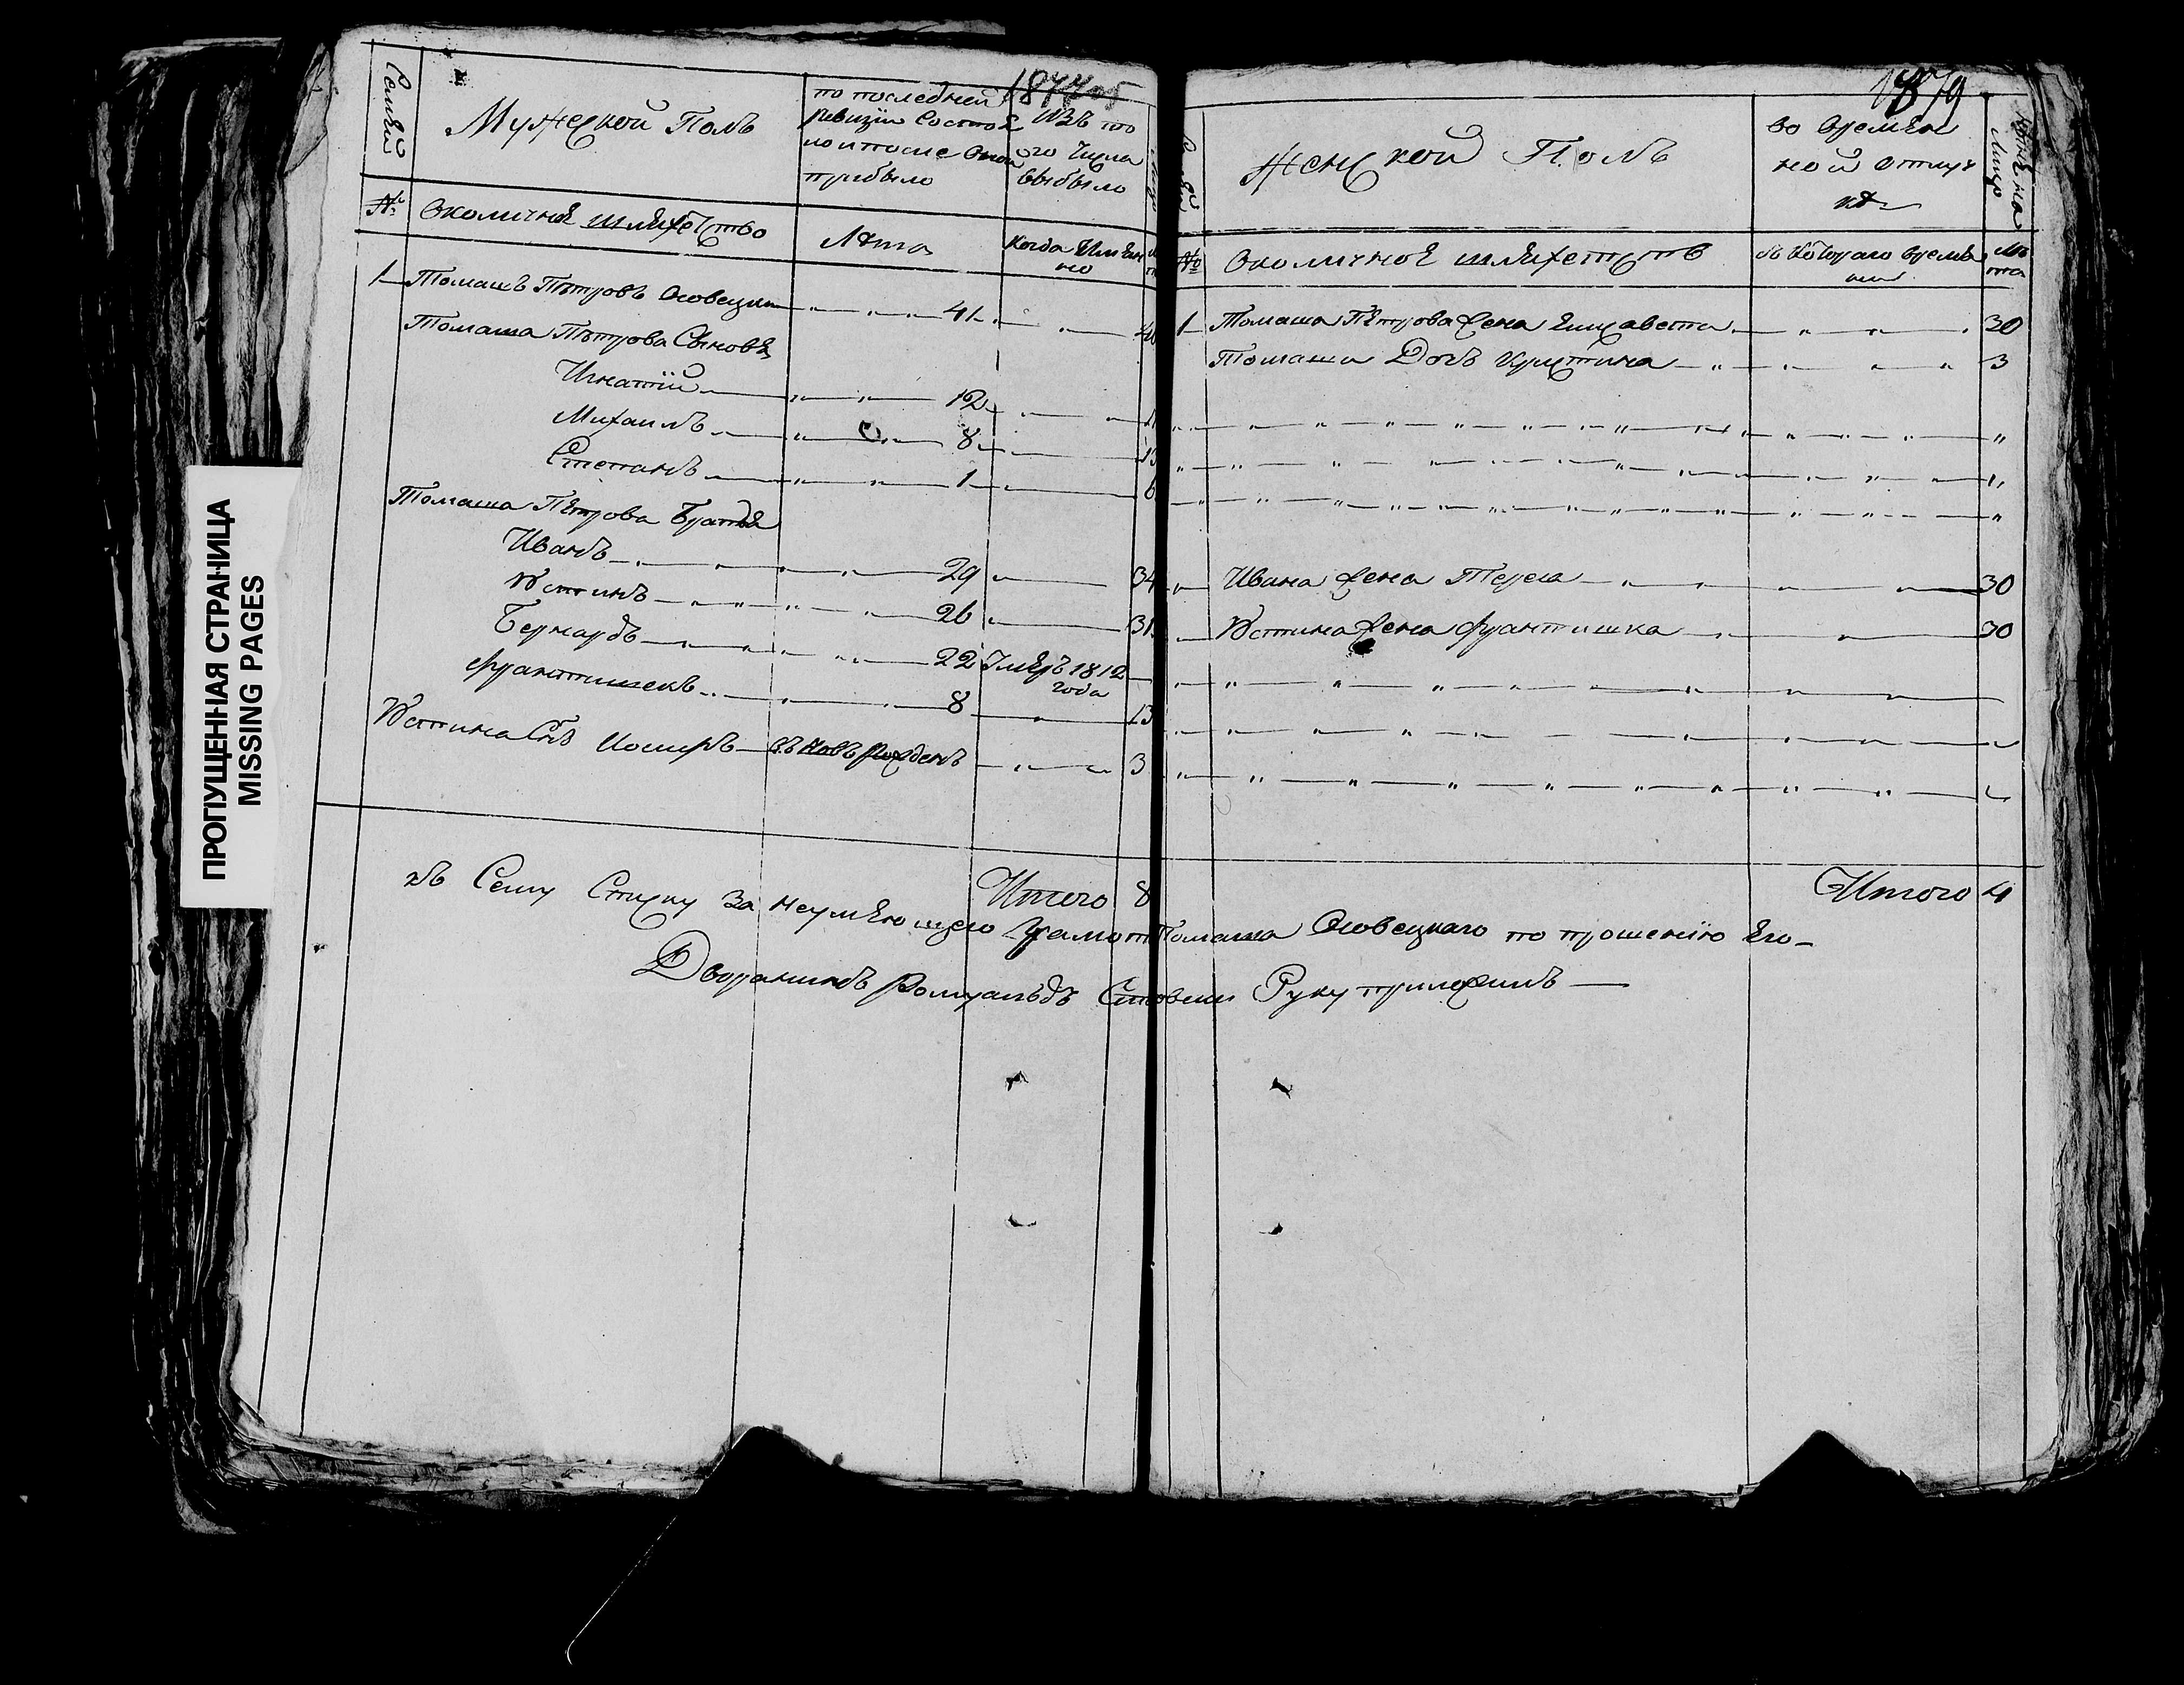 ПРОПУЩЕННАЯ СТРАНИЦА
MISSING PAGES
Семей
Мужеской Полъ
по последней
ревизіи состоя
ло и после оной
прибыло
Изъ то
го числа
выбыло
№
Околичное шляхетство
Лѣта
Когда Имян
но
1 Томашъ Пѣтровъ Осовецкий 41
Томаша Пѣтрова Сыновя
Игнатій 12
Михаилъ 8 13
Степанъ 1 6
Томаша Пѣтрова Братья
Иванъ 29 34
Устинъ 26 31
Бернардъ 22 Умеръ 1812
года
Франтишекъ 8 13
Устина Снъ Иосифъ въ Новъ рожденъ 3
Итого 8
1879
Женской Полъ
во времен
ной отлуч
кѣ
Лицо
№
Околичное шляхетств
съ которого време
ни
Лѣ
та
1 Томаша Пѣтрова жена Елисавета 30
Томаша Дочъ Кристина 3
Ивана жена Тереса 30
Устина жена Франтишка 30
Итого 4
къ Сему Списку за неумѣющего грамот Томаша Осовецкаго по прошенію Его
Дворянинъ Ромуальдъ Руку приложилъ